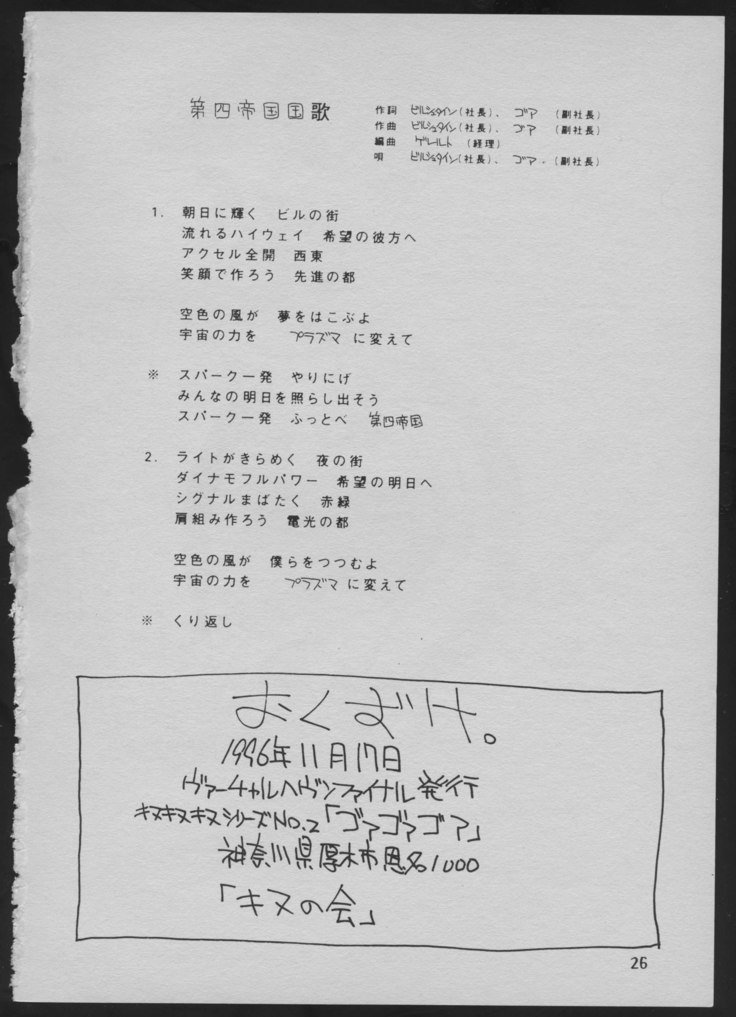 第四帝国国歌
作詞 ビルシュタイン(社長)、 ゴア (副社長)
作曲 ビルシュタイン(社長)、 ゴア (副社長)
編曲 ゲレルト (経理)
唄 ビルシュタイン(社長)、 ゴア、(副社長)
1. 朝日に輝く ビルの街
流れるハイウェイ 希望の彼方へ
アクセル全開 西東
笑顔で作ろう 先進の都
空色の風が 夢をはこぶよ
宇宙の力を プラズマ に変えて
※ スパーク一発 やりにげ
みんなの明日を照らし出そう
スパーク一発 ふっとべ 第四帝国
2. ライトがきらめく 夜の街
ダイナモフルパワー 希望の明日へ
シグナルまばたく 赤緑
肩組み作ろう 電光の都
空色の風が 僕らをつつむよ
宇宙の力を プラズマ に変えて
※ くり返し
おくづけ。
1996年11月17日
ヴァーチャルヘヴンファイナル発行
キヌキヌキヌシリーズNO.2「ゴァゴァゴア」
神奈川県厚木市恩名1000
「キヌの会」
26